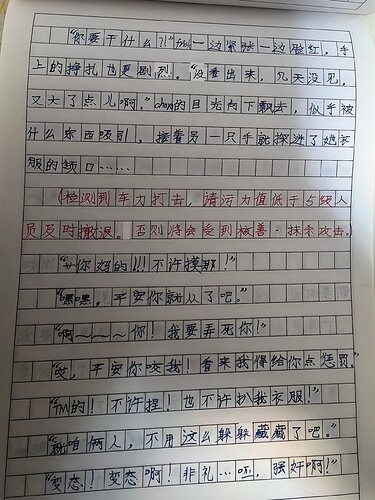 "你要干什么?!" 一边紧张一边脸红，手
上的挣扎也更剧烈。"没看出来，几天没见，
又大了点儿啊。" 的目光向下飘去，似乎被
什么东西吸引，接着另一只手就探进了她衣
服的领口……
(检测到车力打击，清污力值低于5级人
员及时撤退。否则将会受到核善·抹杀攻击)
"艹你妈的!!!不许摸那!"
"嘿嘿，平安你就从了吧。"
"啊～～～你!我要弄死你!"
"哎，平安你咬我!看来我得给你点惩罚."
"TM的!不许捏!也不许扒我衣服!"
"就咱俩人，不用这么躲躲藏藏了吧。"
"变态!变态啊!非礼… ，强奸啊!"